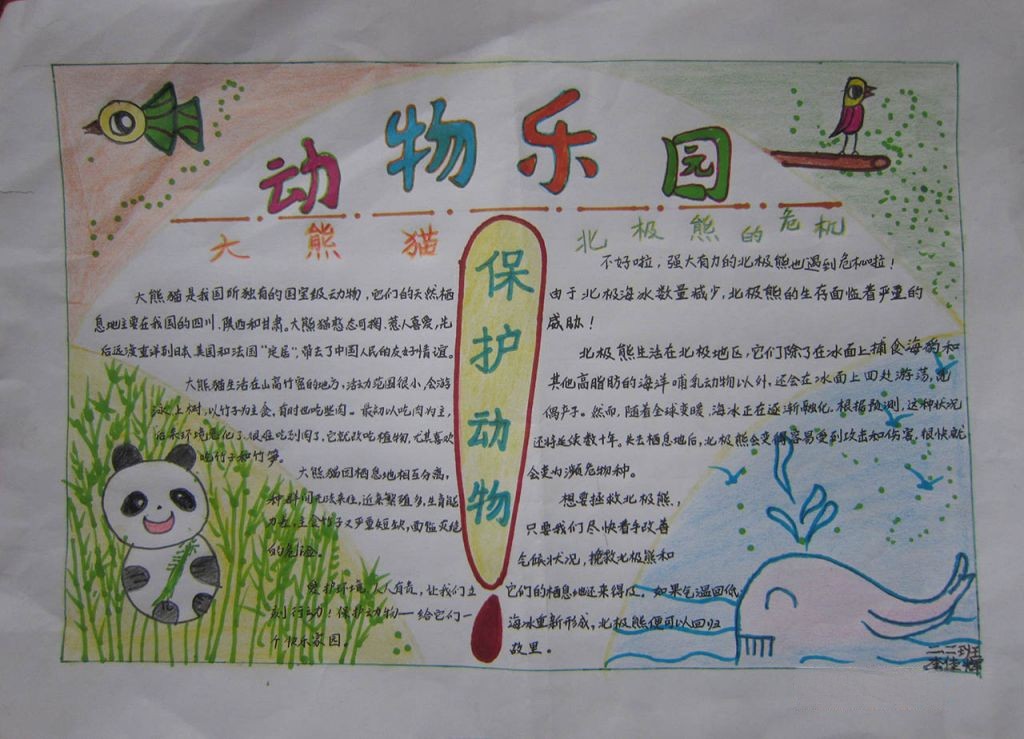 动物乐园
大熊猫
大熊猫是我国所独有的国宝级动物，它们的天然栖
息地主要在我国的四川、陕西和甘肃。大熊猫憨态可掬、惹人喜爱，先
后远渡重洋到日本、美国和法国“定居”，带去了中国人民的友好情谊。
大熊猫生活在山高竹密的地方，活动范围很小，会游
泳、上树，以竹子为主食，有时也吃些肉。最初以吃肉为主，
后来环境恶化了，很难吃到肉了，它就改吃植物，尤其喜欢
吃竹子和竹笋。
大熊猫因栖息地相互分离，
种群间无法来往，近亲繁殖多，生育能
力差，主食竹子又严重短缺，面临灭绝
的危险。
爱护环境，人人有责，让我们立
刻行动！保护动物——给它们一
个快乐家园。
保护动物
北极熊的危机
不好啦，强大有力的北极熊也遇到危机啦！
由于北极海冰数量减少，北极熊的生存面临着严重的
威胁！
北极熊生活在北极地区，它们除了在冰面上捕食海豹和
其他高脂肪的海洋哺乳动物以外，还会在冰面上四处游荡，
偶产子。然而，随着全球变暖，海冰正在逐渐融化，根据预测，这种状况
还将延续数十年。失去栖息地后，北极熊会变得容易受到攻击和伤害，很快就
会变为濒危物种。
想要拯救北极熊，
只要我们尽快着手改善
气候状况，挽救北极熊和
它们的栖息地还来得及，如果气温回低
海冰重新形成，北极熊便可以回归
故里。
二、二班
李佳辉